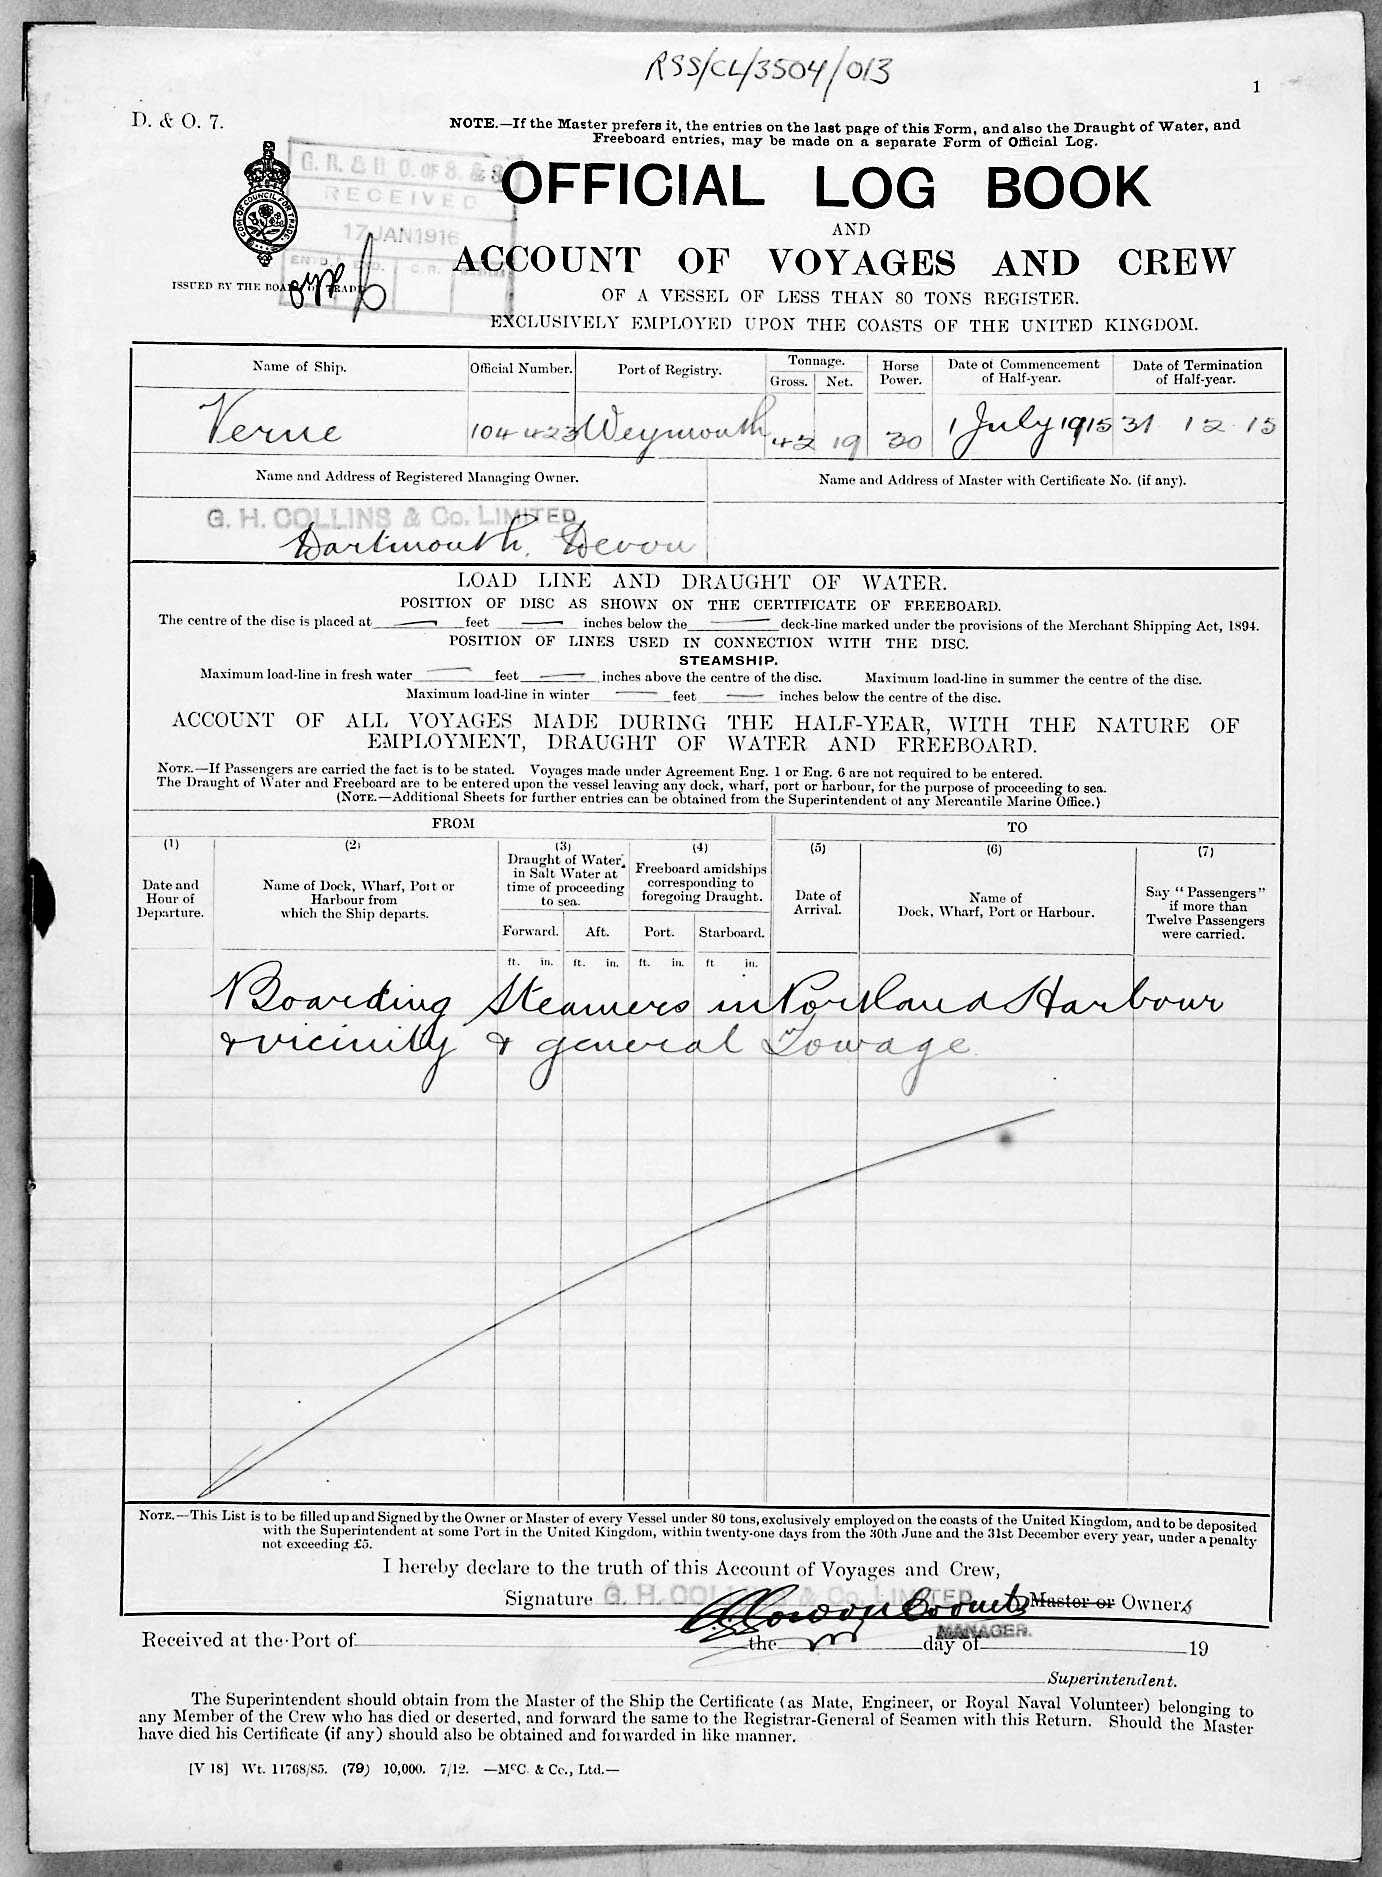 RSS/CL/3504/013
1
D. & O. 7.
NOTE.—If the Master prefers it, the entries on the last page of this Form, and also the Draught of Water, and
Freeboard entries, may be made on a separate Form of Official Log.
OFFICIAL LOG BOOK
AND
ACCOUNT OF VOYAGES AND CREW
OF A VESSEL OF LESS THAN 80 TONS REGISTER.
EXCLUSIVELY EMPLOYED UPON THE COASTS OF THE UNITED KINGDOM.
RECEIVED
17 JAN 1916
ISSUED BY THE BOARD OF TRADE
Name of Ship.
Official Number.
Port of Registry.
Tonnage.
Gross. Net.
Horse Power.
Date of Commencement of Half-year.
Date of Termination of Half-year.
Verne 104423 Weymouth 42 19 30 1 July 1915 31 12 15
Name and Address of Registered Managing Owner.
Name and Address of Master with Certificate No. (if any).
G. H. COLLINS & Co. LIMITED
Dartmouth, Devon
LOAD LINE AND DRAUGHT OF WATER.
POSITION OF DISC AS SHOWN ON THE CERTIFICATE OF FREEBOARD.
The centre of the disc is placed at feet inches below the deck-line marked under the provisions of the Merchant Shipping Act, 1894.
POSITION OF LINES USED IN CONNECTION WITH THE DISC.
STEAMSHIP.
Maximum load-line in fresh water feet inches above the centre of the disc. Maximum load-line in summer the centre of the disc.
Maximum load-line in winter feet inches below the centre of the disc.
ACCOUNT OF ALL VOYAGES MADE DURING THE HALF-YEAR, WITH THE NATURE OF
EMPLOYMENT, DRAUGHT OF WATER AND FREEBOARD.
NOTE.—If Passengers are carried the fact is to be stated. Voyages made under Agreement Eng. 1 or Eng. 6 are not required to be entered.
The Draught of Water and Freeboard are to be entered upon the vessel leaving any dock, wharf, port or harbour, for the purpose of proceeding to sea.
(NOTE.—Additional Sheets for further entries can be obtained from the Superintendent of any Mercantile Marine Office.)
FROM
TO
(1)
Date and
Hour of
Departure.
(2)
Name of Dock, Wharf, Port or
Harbour from
which the Ship departs.
(3)
Draught of Water
in Salt Water at
time of proceeding
to sea.
Forward. Aft.
(4)
Freeboard amidships
corresponding to
foregoing Draught.
Port. Starboard.
(5)
Date of
Arrival.
(6)
Name of
Dock, Wharf, Port or Harbour.
(7)
Say "Passengers"
if more than
Twelve Passengers
were carried.
ft. in. ft. in. ft. in. ft in.
Boarding Steamers in Portland Harbour
& vicinity & general Towage
NOTE.—This List is to be filled up and Signed by the Owner or Master of every Vessel under 80 tons, exclusively employed on the coasts of the United Kingdom, and to be deposited
with the Superintendent at some Port in the United Kingdom, within twenty-one days from the 30th June and the 31st December every year, under a penalty
not exceeding £5.
I hereby declare to the truth of this Account of Voyages and Crew,
Signature G. H. COLLINS & Co. LIMITED Master or Owners
MANAGER.
Received at the Port of the day of 19
Superintendent.
The Superintendent should obtain from the Master of the Ship the Certificate (as Mate, Engineer, or Royal Naval Volunteer) belonging to
any Member of the Crew who has died or deserted, and forward the same to the Registrar-General of Seamen with this Return. Should the Master
have died his Certificate (if any) should also be obtained and forwarded in like manner.
[V 18] Wt. 11768/85. (79) 10,000. 7/12. —McC. & Co., Ltd.—